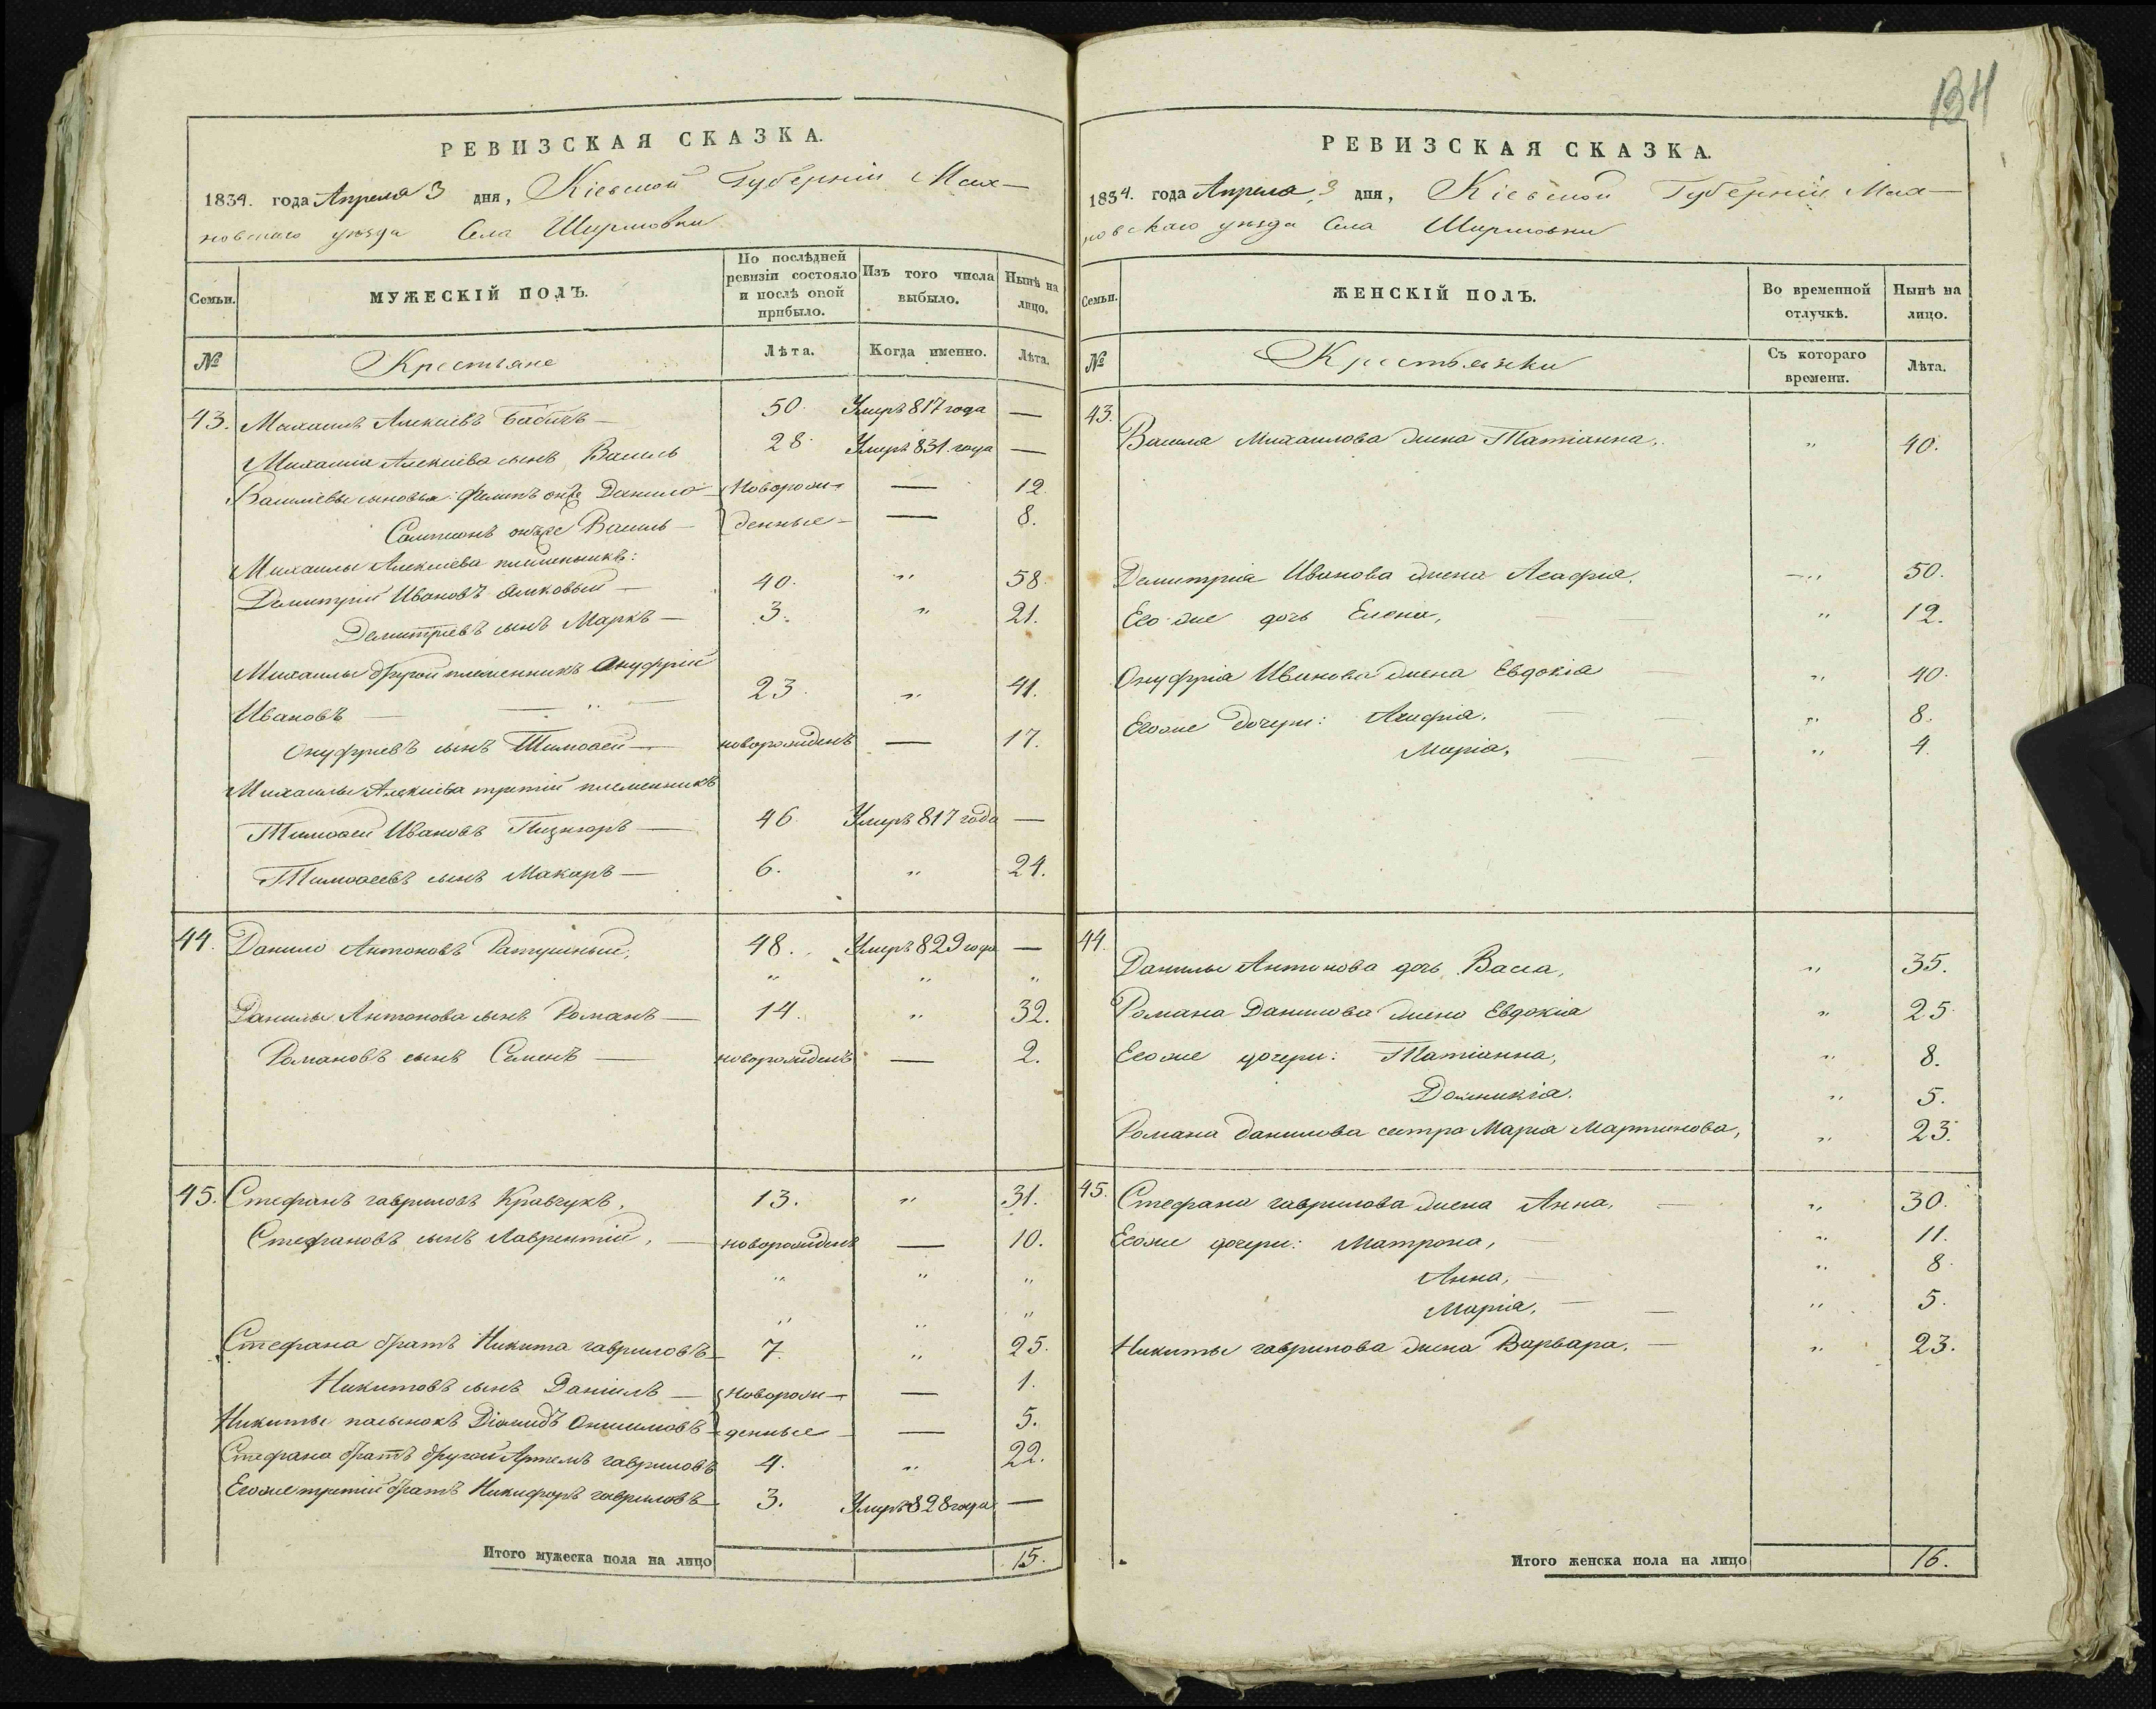 134
РЕВИЗСКАЯ СКАЗКА.
1834. года Апреля 3 дня, Кіевской Губерніи Мах-
новскаго уезда Села Ширмовки
Семьи.
МУЖЕСКІЙ ПОЛЪ.
По послѣдней ревизіи состояло и послѣ оной прибыло.
Изъ того числа выбыло.
Нынѣ на лицо.
№ Крестьяне Лѣта. Когда именно. Лѣта.
43. Михаилъ Алексіевъ Бабичъ — 50. Умеръ 817 года —
Михаила Алексіева сынъ Василь 28. Умеръ 831. года —
Василіевы сыновья: Филипъ онже Данило — Новорож- — 12.
Сампсонъ онже Василь — денные — — 8.
Михаилы Алексіева племенникъ:
Демитрій Ивановъ — 40. " 58.
Демитріевъ сынъ Маркъ — 3. " 21.
Михаилы другой племенникъ Онуфрій
Ивановъ — 23. " 41.
Онуфріевъ сынъ Тимоѳей — новорожденъ — 17.
Михаилы Алексіева третій племенникъ
Тимоѳей Ивановъ — 46. Умеръ 817 года —
Тимоѳеевъ сынъ Макаръ — 6. " 24.
44. Данило Антоновъ Ратушный, 48. Умеръ 829 года —
" " "
Данилы Антонова сынъ Романъ — 14. " 32.
Романовъ сынъ Семенъ — новорожденъ — 2.
45. Стефанъ гавриловъ Кравчукъ, 13. " 31.
Стефановъ сынъ Лаврентій, — новорожденъ — 10.
" " "
" " "
Стефана братъ Никита гавриловъ — 7. " 25.
Никитовъ сынъ Даніилъ — Новорож- — 1.
Никиты пасынокъ Діомидъ Онисимовъ — денные — — 5.
Стефана братъ другой Артемъ гавриловъ 4. " 22.
Егоже третій братъ Никифоръ гавриловъ — 3. Умеръ 828 года —
Итого мужеска пола на лицо 15.
РЕВИЗСКАЯ СКАЗКА.
1834. года Апреля 3 дня, Кіевской Губерніи Мах-
новскаго уезда Села Ширмовки
Семьи.
ЖЕНСКІЙ ПОЛЪ.
Во временной отлучкѣ.
Нынѣ на лицо.
№ Крестьянки Съ котораго времени. Лѣта.
43.
Василя Михаилова жена Татіанна, " 40.
Демитріа Иванова жена Агафіа, " 50.
Его же дочь Елена, " 12.
Онуфріа Иванова жена Евдокіа — " 40.
Егоже дочери: — " 8.
Маріа, — " 4.
44.
Данилы Антонова дочь Васса, " 35.
Романа Данилова жена Евдокіа " 25.
Егоже дочери: Татіанна, " 8.
Домникіа. " 5.
Романа данилова сестра Маріа Мартинова, " 23.
45. Стефана гаврилова жена Анна, — " 30.
Егоже дочери: Матрона, — " 11.
Анна, — " 8.
Маріа, — " 5.
Никиты гаврилова жена Варвара, — " 23.
Итого женска пола на лицо 16.